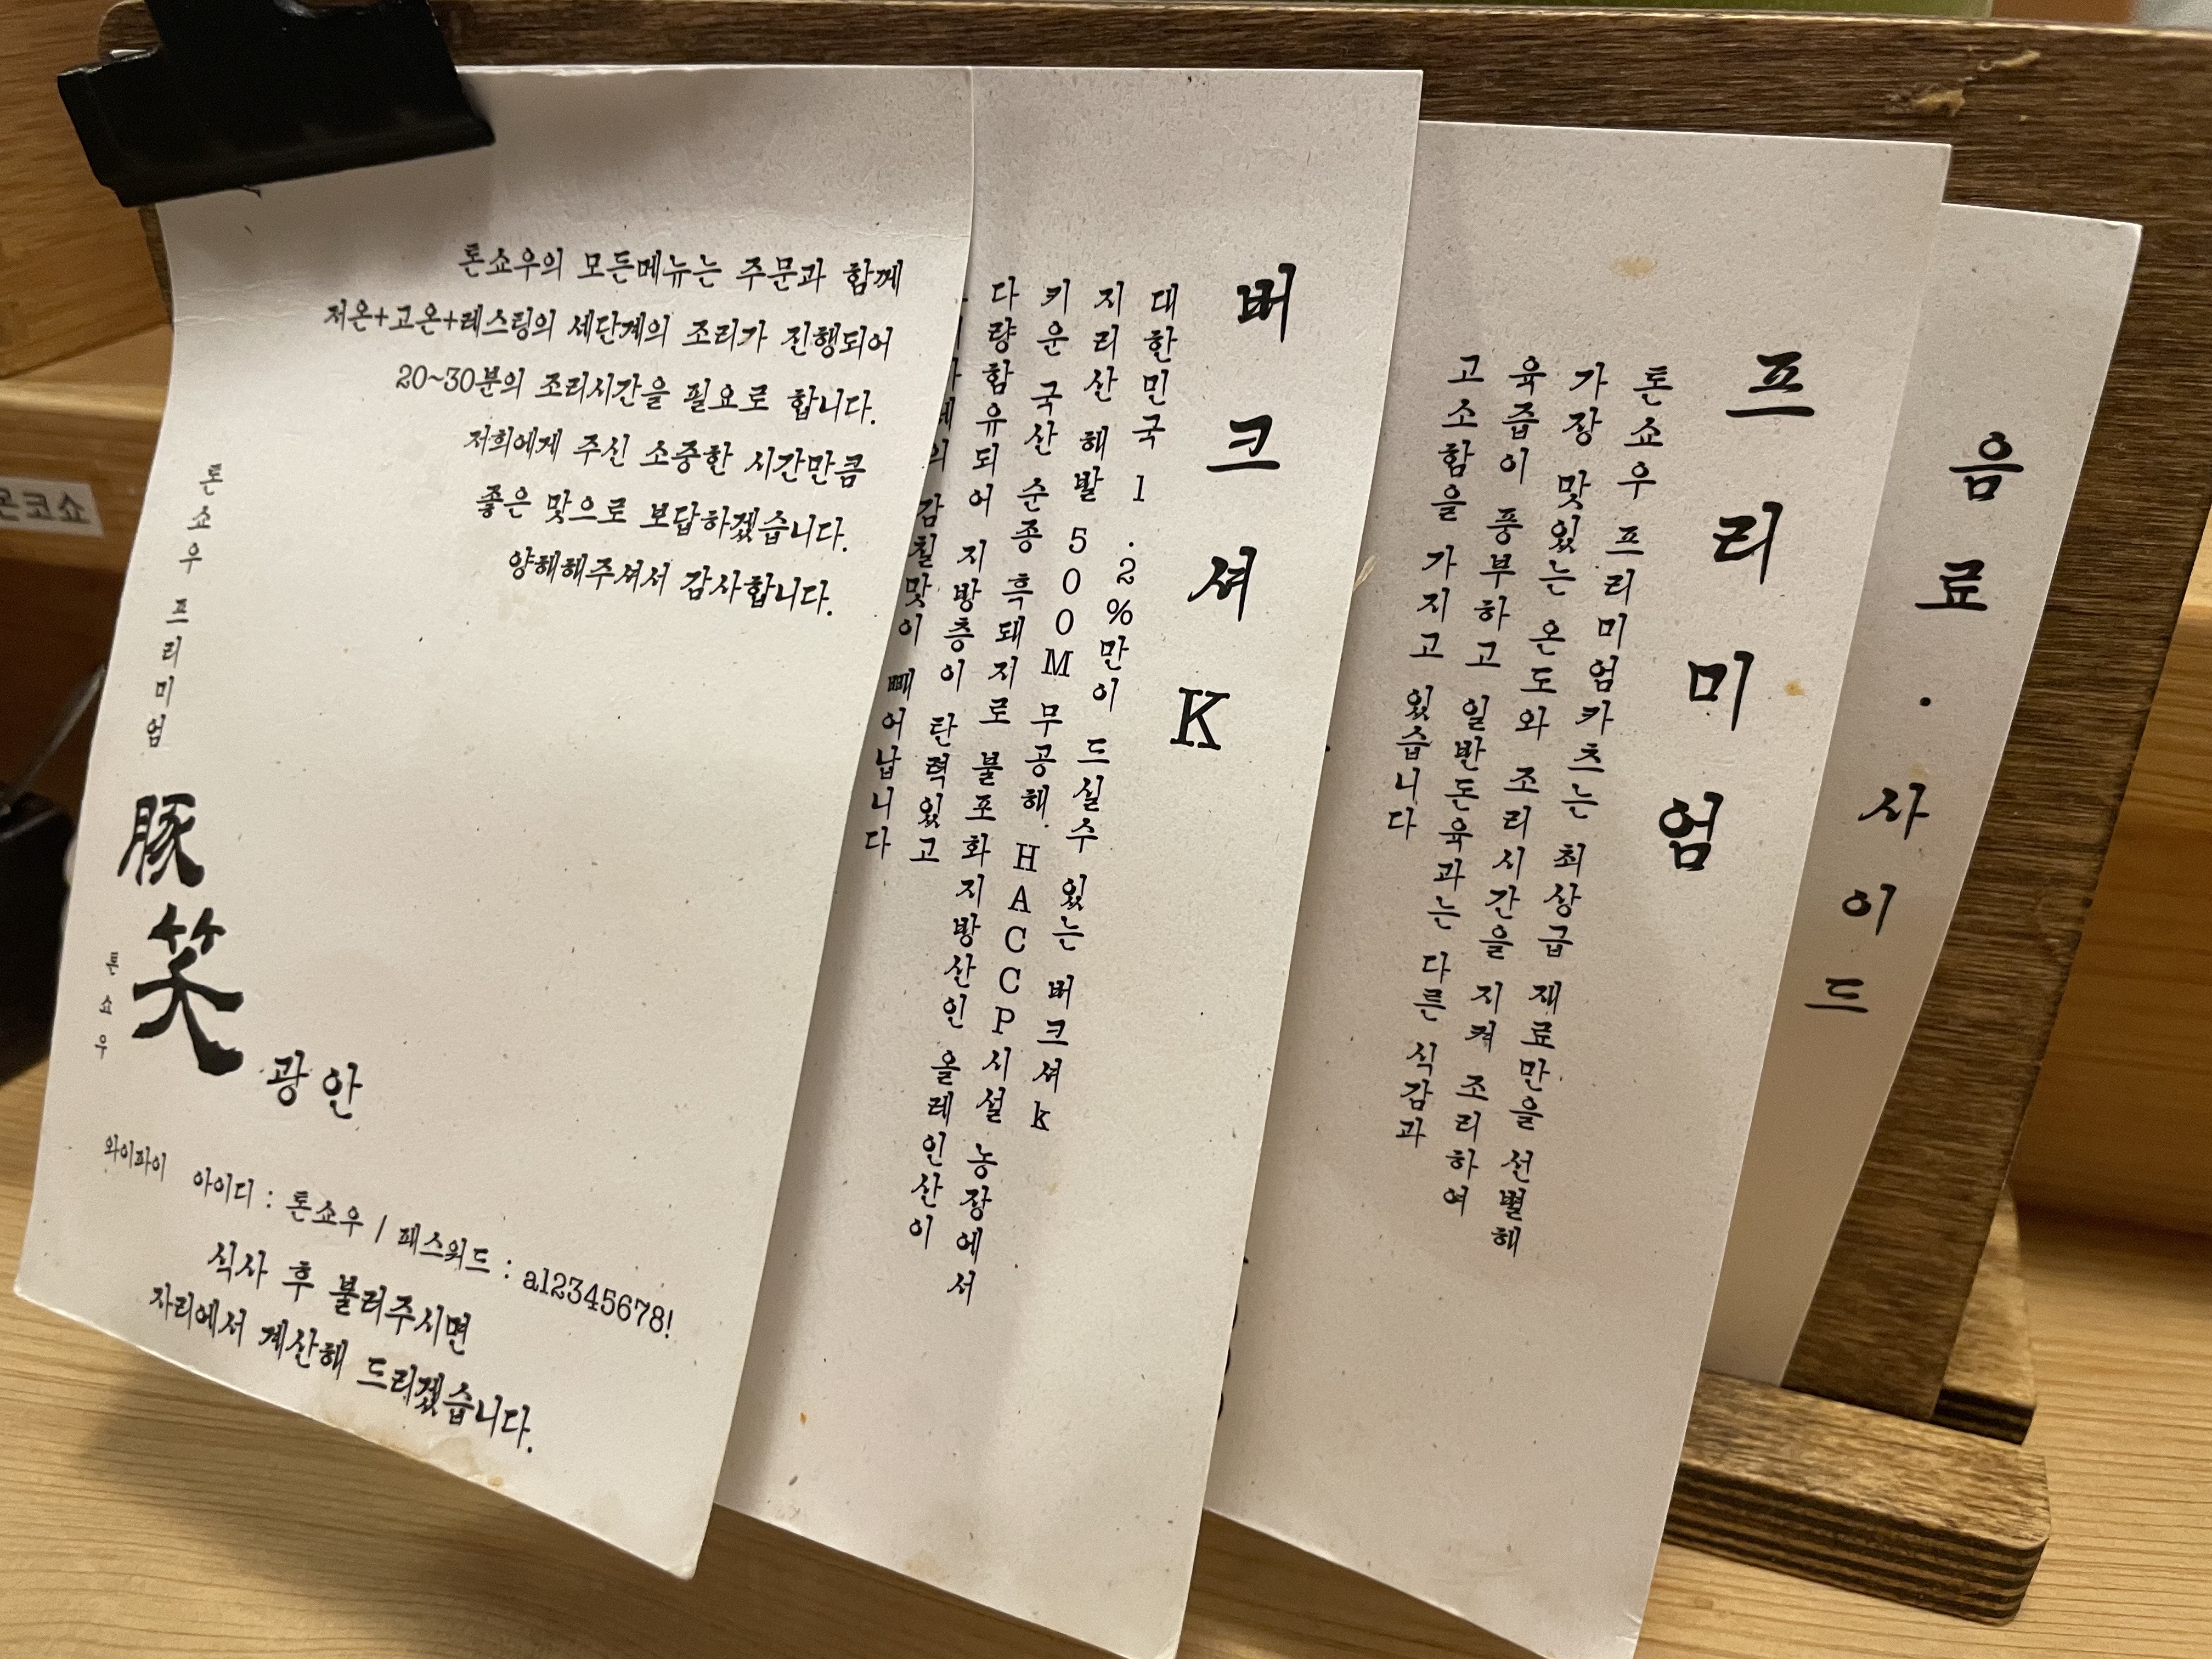 톤쇼우의 모든메뉴는 주문과 함께
저온+고온+레스팅의 세단계의 조리가 진행되어
20~30분의 조리시간을 필요로 합니다.
저희에게 주신 소중한 시간만큼
좋은 맛으로 보답하겠습니다.
양해해주셔서 감사합니다.
톤쇼우 프리미엄
豚笑
톤쇼우
광안
와이파이 아이디 : 톤쇼우 / 패스워드 : a12345678!
식사 후 불러주시면
자리에서 계산해 드리겠습니다.
버크셔K
대한민국 1.2%만이 드실수 있는 버크셔k
지리산 해발 500M 무공해 HACCP시설 농장에서
키운 국산 순종 흑돼지로 불포화지방산인 올레인산이
다량함유되어 지방층이 탄력있고
감칠맛이 빼어납니다
프리미엄
톤쇼우 프리미엄카츠는 최상급 재료만을 선별해
가장 맛있는 온도와 조리시간을 지켜 조리하여
육즙이 풍부하고 일반돈육과는 다른 식감과
고소함을 가지고 있습니다
음료·사이드
몬코쇼